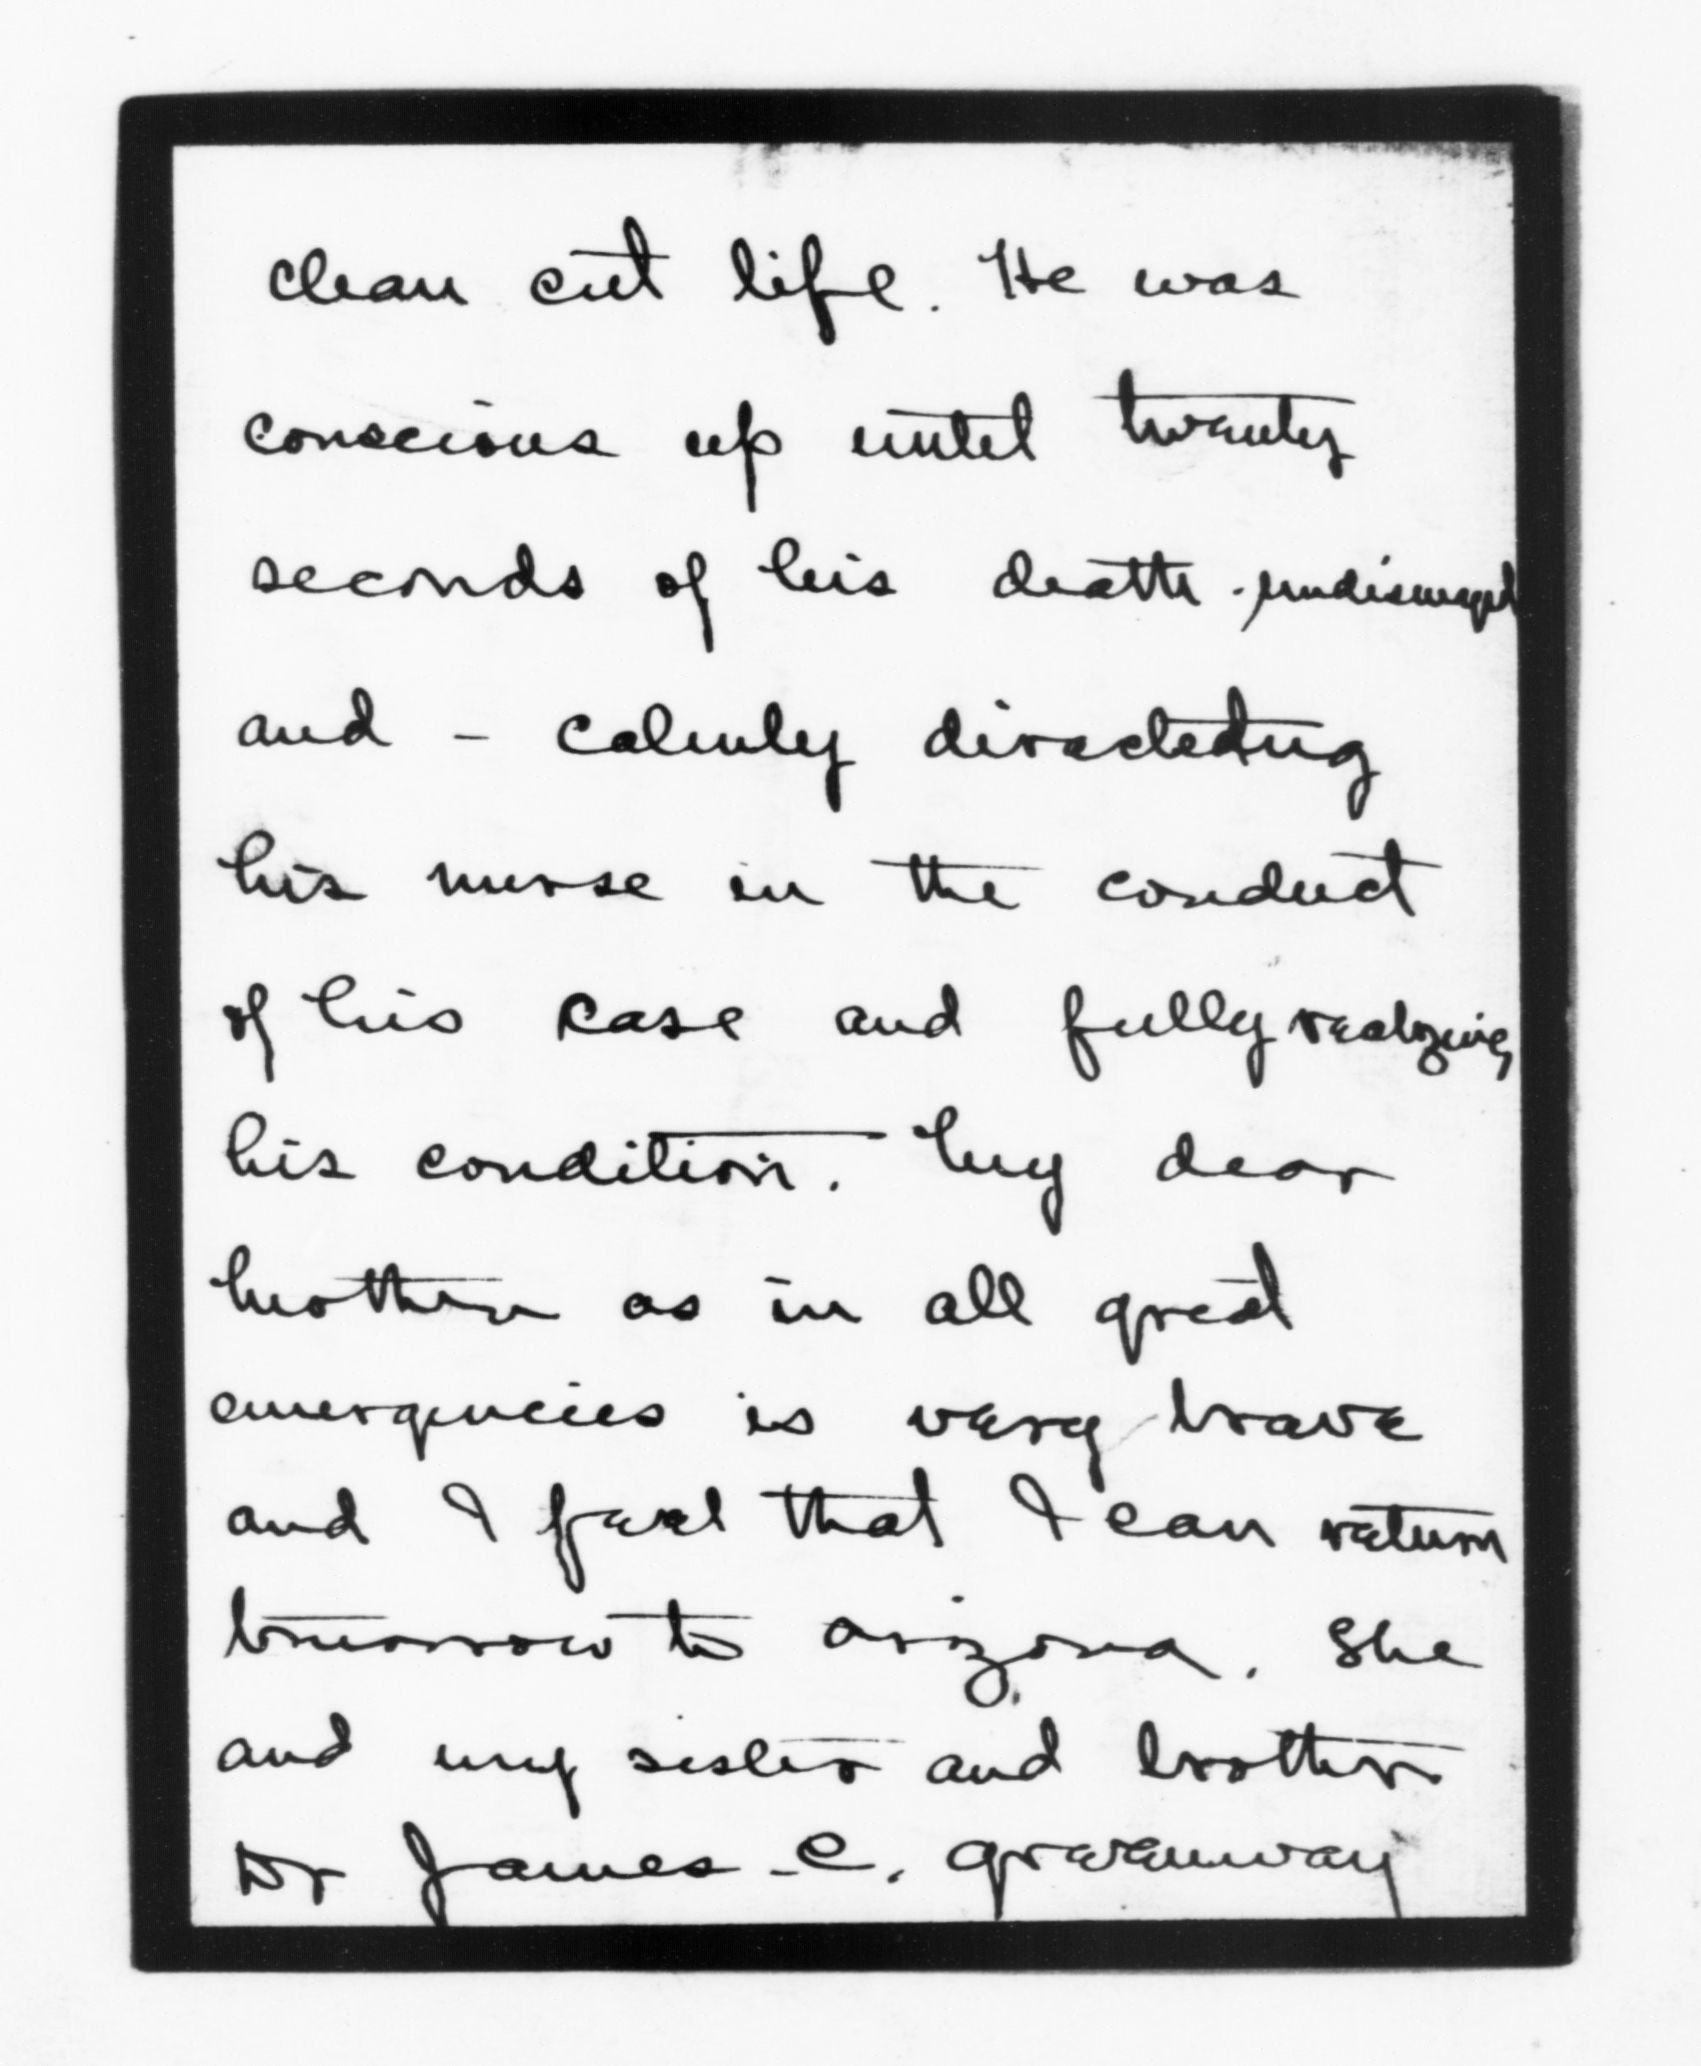 clean cut life. He was
conscious up until twenty
seconds of his death. undismayed
and - calmly directing
his nurse in the conduct
of his case and fully realizing
his condition. My dear
mother as in all great
emergencies is very brave
and I feel that I can return
tomorrow to Arizona. She
and my sister and brother
Dr James C. Greenway